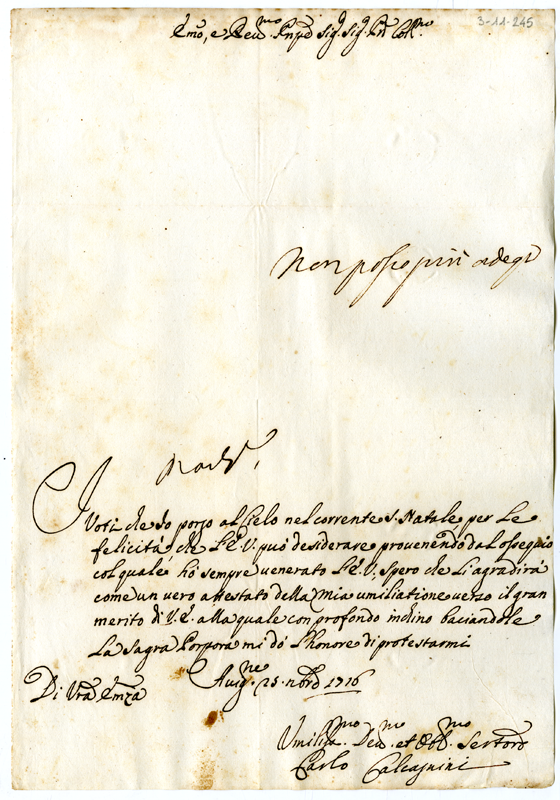 3-11-245
Emo, e Reu.mo Pnpe Sig. Sig. Pn Coll.mo
Non posso più
I
Voti che Io porgo al Cielo nel corrente S. Natale, per le
felicità, che l'E. V. può desiderare provenendo dal ossequio
col quale, hò sempre venerato l'E. V., spero che li agradirà
come un vero attestato della Mia umiliatione verso il gran
merito di V. E. alla quale con profondo inchino baciandole
La Sagra Porpora mi dò l'honore di protestarmi
Di Vra Emza
Auig.ne 25. nbre 1716
Umiliss.mo Deu.mo et Obb.mo Seruore
Carlo Calcagnini